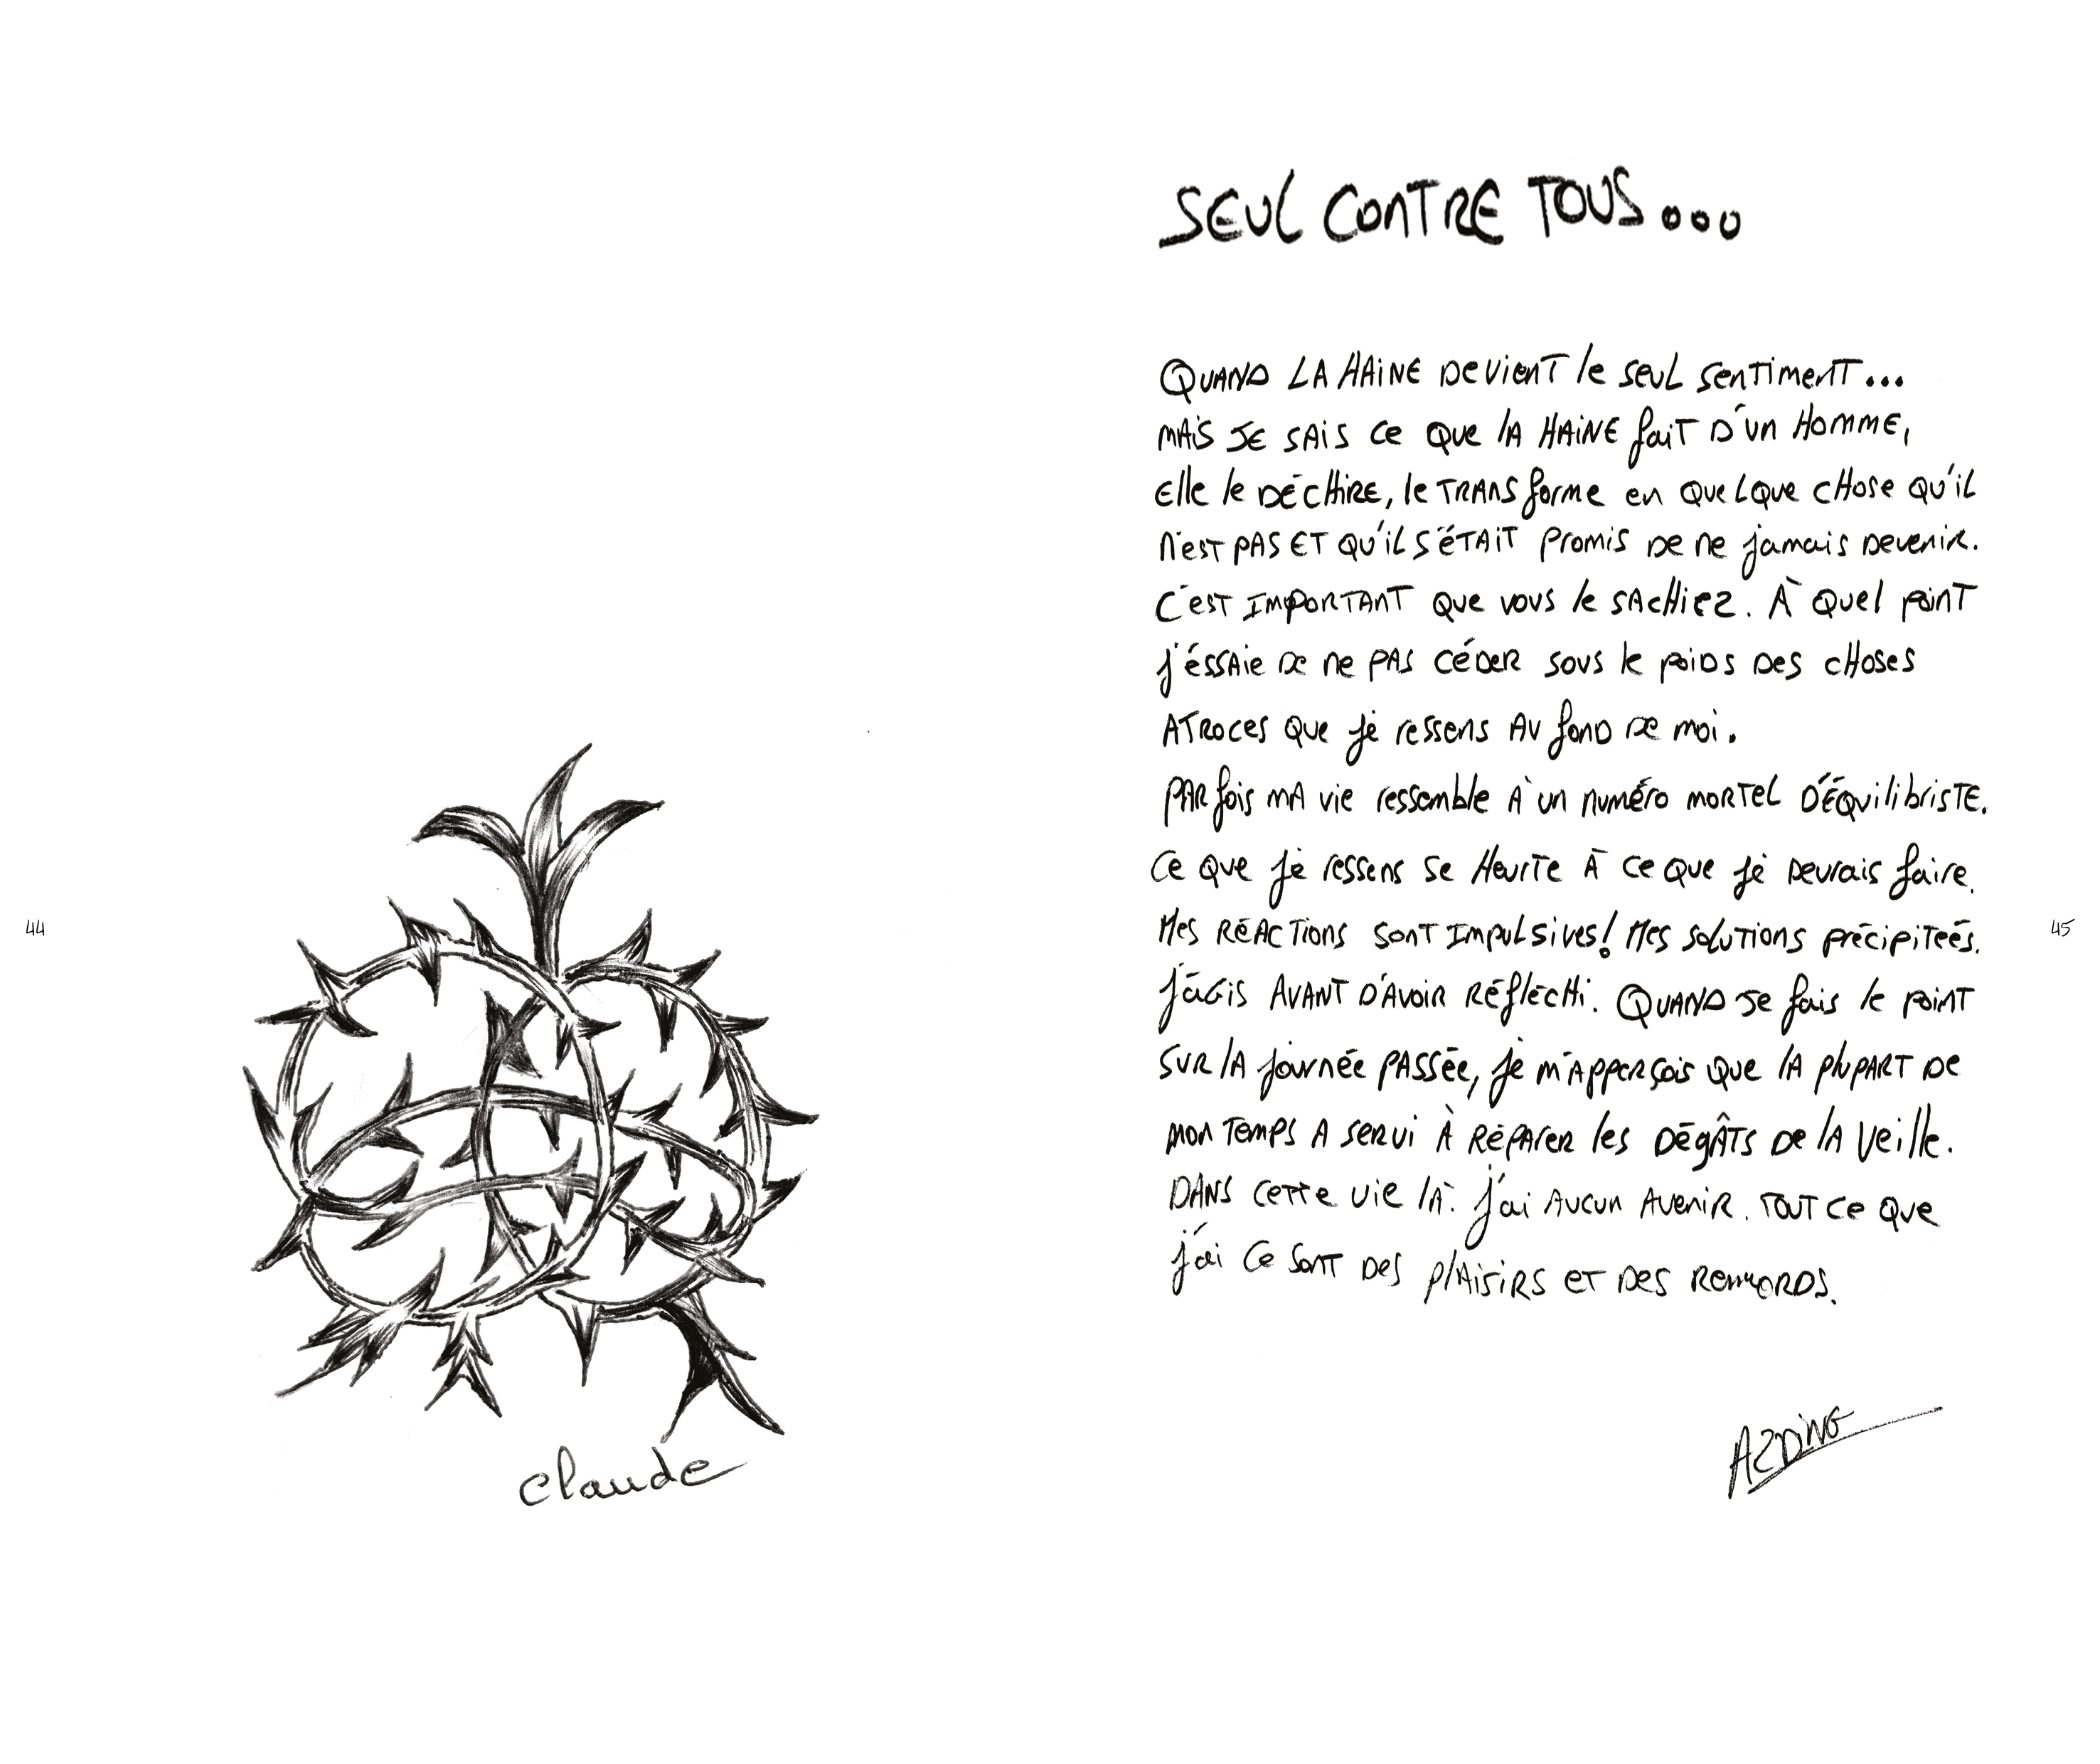 44
Claude
SEUL CONTRE TOUS...
QUAND LA HAINE DEVIENT le SEUL SENTIMENT...
MAIS JE SAIS CE QUE LA HAINE fAIT D'UN HOMME,
Elle le DÉCHIRE, le TRANSforme en QUELQUE CHOSE QU'IL
N'EST PAS ET QU'IL S'ÉTAIT PROMIS DE NE JAMAIS DEVENIR.
C'EST IMPORTANT QUE VOUS le SACHIEZ. À QUEL POINT
J'ÉSSAIE DE NE PAS CÉDER SOUS le POIDS DES CHOSES
ATROCES QUE JE RESSENS AU fOND DE MOI.
PARfois MA VIE RESSEMBLE À UN NUMÉRO MORTEL D'ÉQUILIBRISTE.
CE QUE JE RESSENS SE HEURTE À CE QUE JE DEVRAIS fAIRE.
MES RÉACTIONS SONT IMPULSIVES! MES SOLUTIONS PRÉCIPITEÉS.
J'AGIS AVANT D'AVOIR RÉFLÉCHI. QUAND JE fAIS le POINT
SUR LA JOURNÉE PASSÉE, JE M'APPERÇOIS QUE LA PLUPART DE
MON TEMPS A SERVI À RÉPARER les DÉGÂTS DE LA VEILLE.
DANS CETTE VIE LÀ. J'AI AUCUN AVENIR. TOUT CE QUE
J'AI CE SONT DES PLAISIRS ET DES REMORDS.
AZDING
45